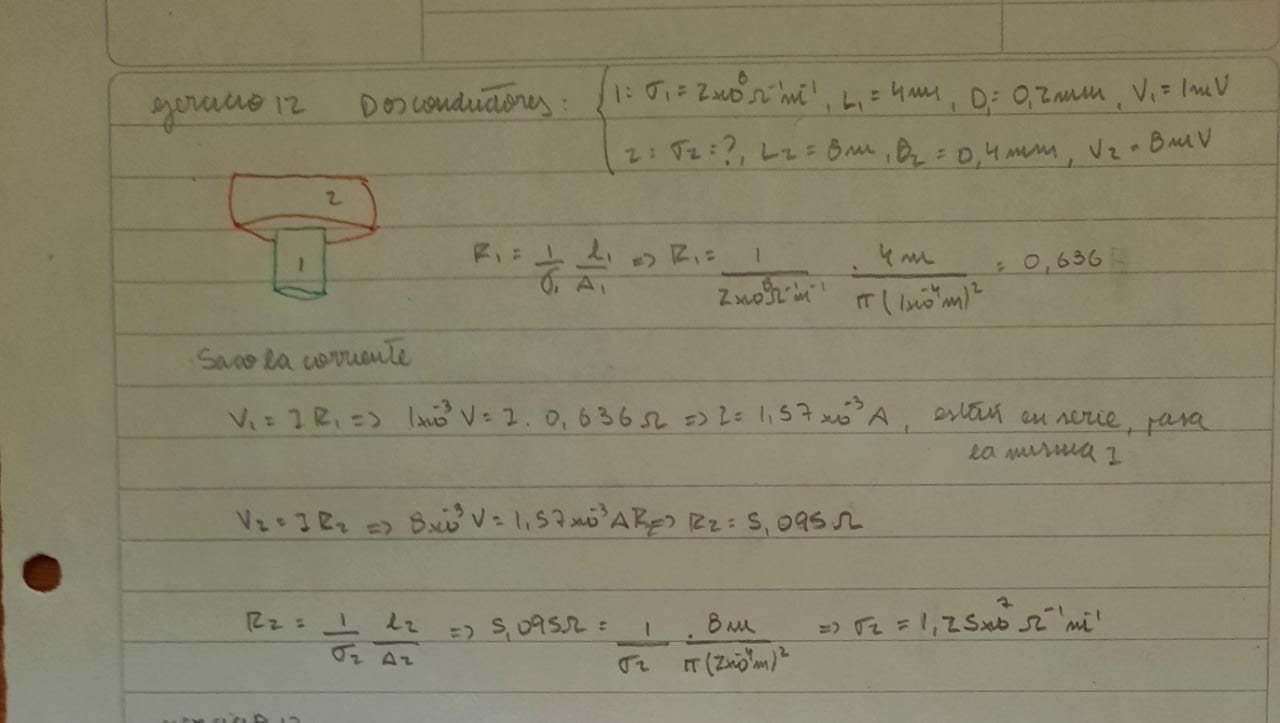 ejercicio 12 Dos conductores: { 1: σ₁ = 2x10⁸ Ω⁻¹m⁻¹, L₁ = 4m, D₁ = 0,2mm, V₁ = 1mV
2: σ₂ = ?, L₂ = 8m, D₂ = 0,4mm, V₂ = 8mV
2
1
R₁ = 1/σ₁ l₁/A₁ => R₁ = 1/(2x10⁸Ω⁻¹m⁻¹) . 4m/(π(1x10⁻⁴m)²) = 0,636
Saco la corriente
V₁ = I R₁ => 1x10⁻³ V = I . 0,636 Ω => I = 1,57x10⁻³ A, están en serie, pasa
la misma I
V₂ = I R₂ => 8x10⁻³ V = 1,57x10⁻³ A R₂ => R₂ = 5,095 Ω
R₂ = 1/σ₂ l₂/A₂ => 5,095Ω = 1/σ₂ . 8m/(π(2x10⁻⁴m)²) => σ₂ = 1,25x10⁷ Ω⁻¹m⁻¹